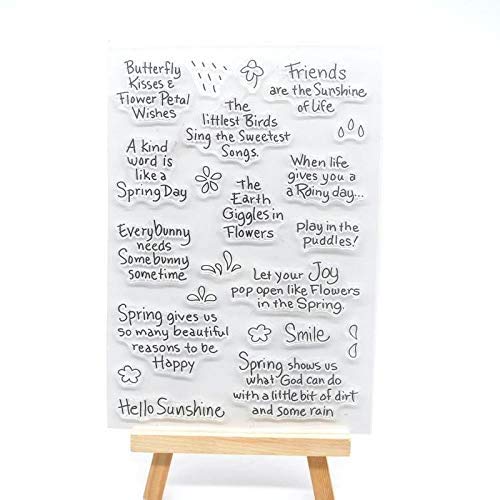 Butterfly
Kisses &
Flower Petal
Wishes
Friends
are the Sunshine
of life
The
littlest Birds
Sing the Sweetest
Songs.
A kind
word is
like a
Spring Day
When life
gives you a
a Rainy day...
The
Earth
Giggles in
Flowers
Play in the
puddles!
Every bunny
needs
Some bunny
sometime
Let your Joy
pop open like Flowers
in the Spring.
Spring gives us
so many beautiful
reasons to be
Happy
Smile
Spring shows us
what God can do
with a little bit of dirt
and some rain
Hello Sunshine